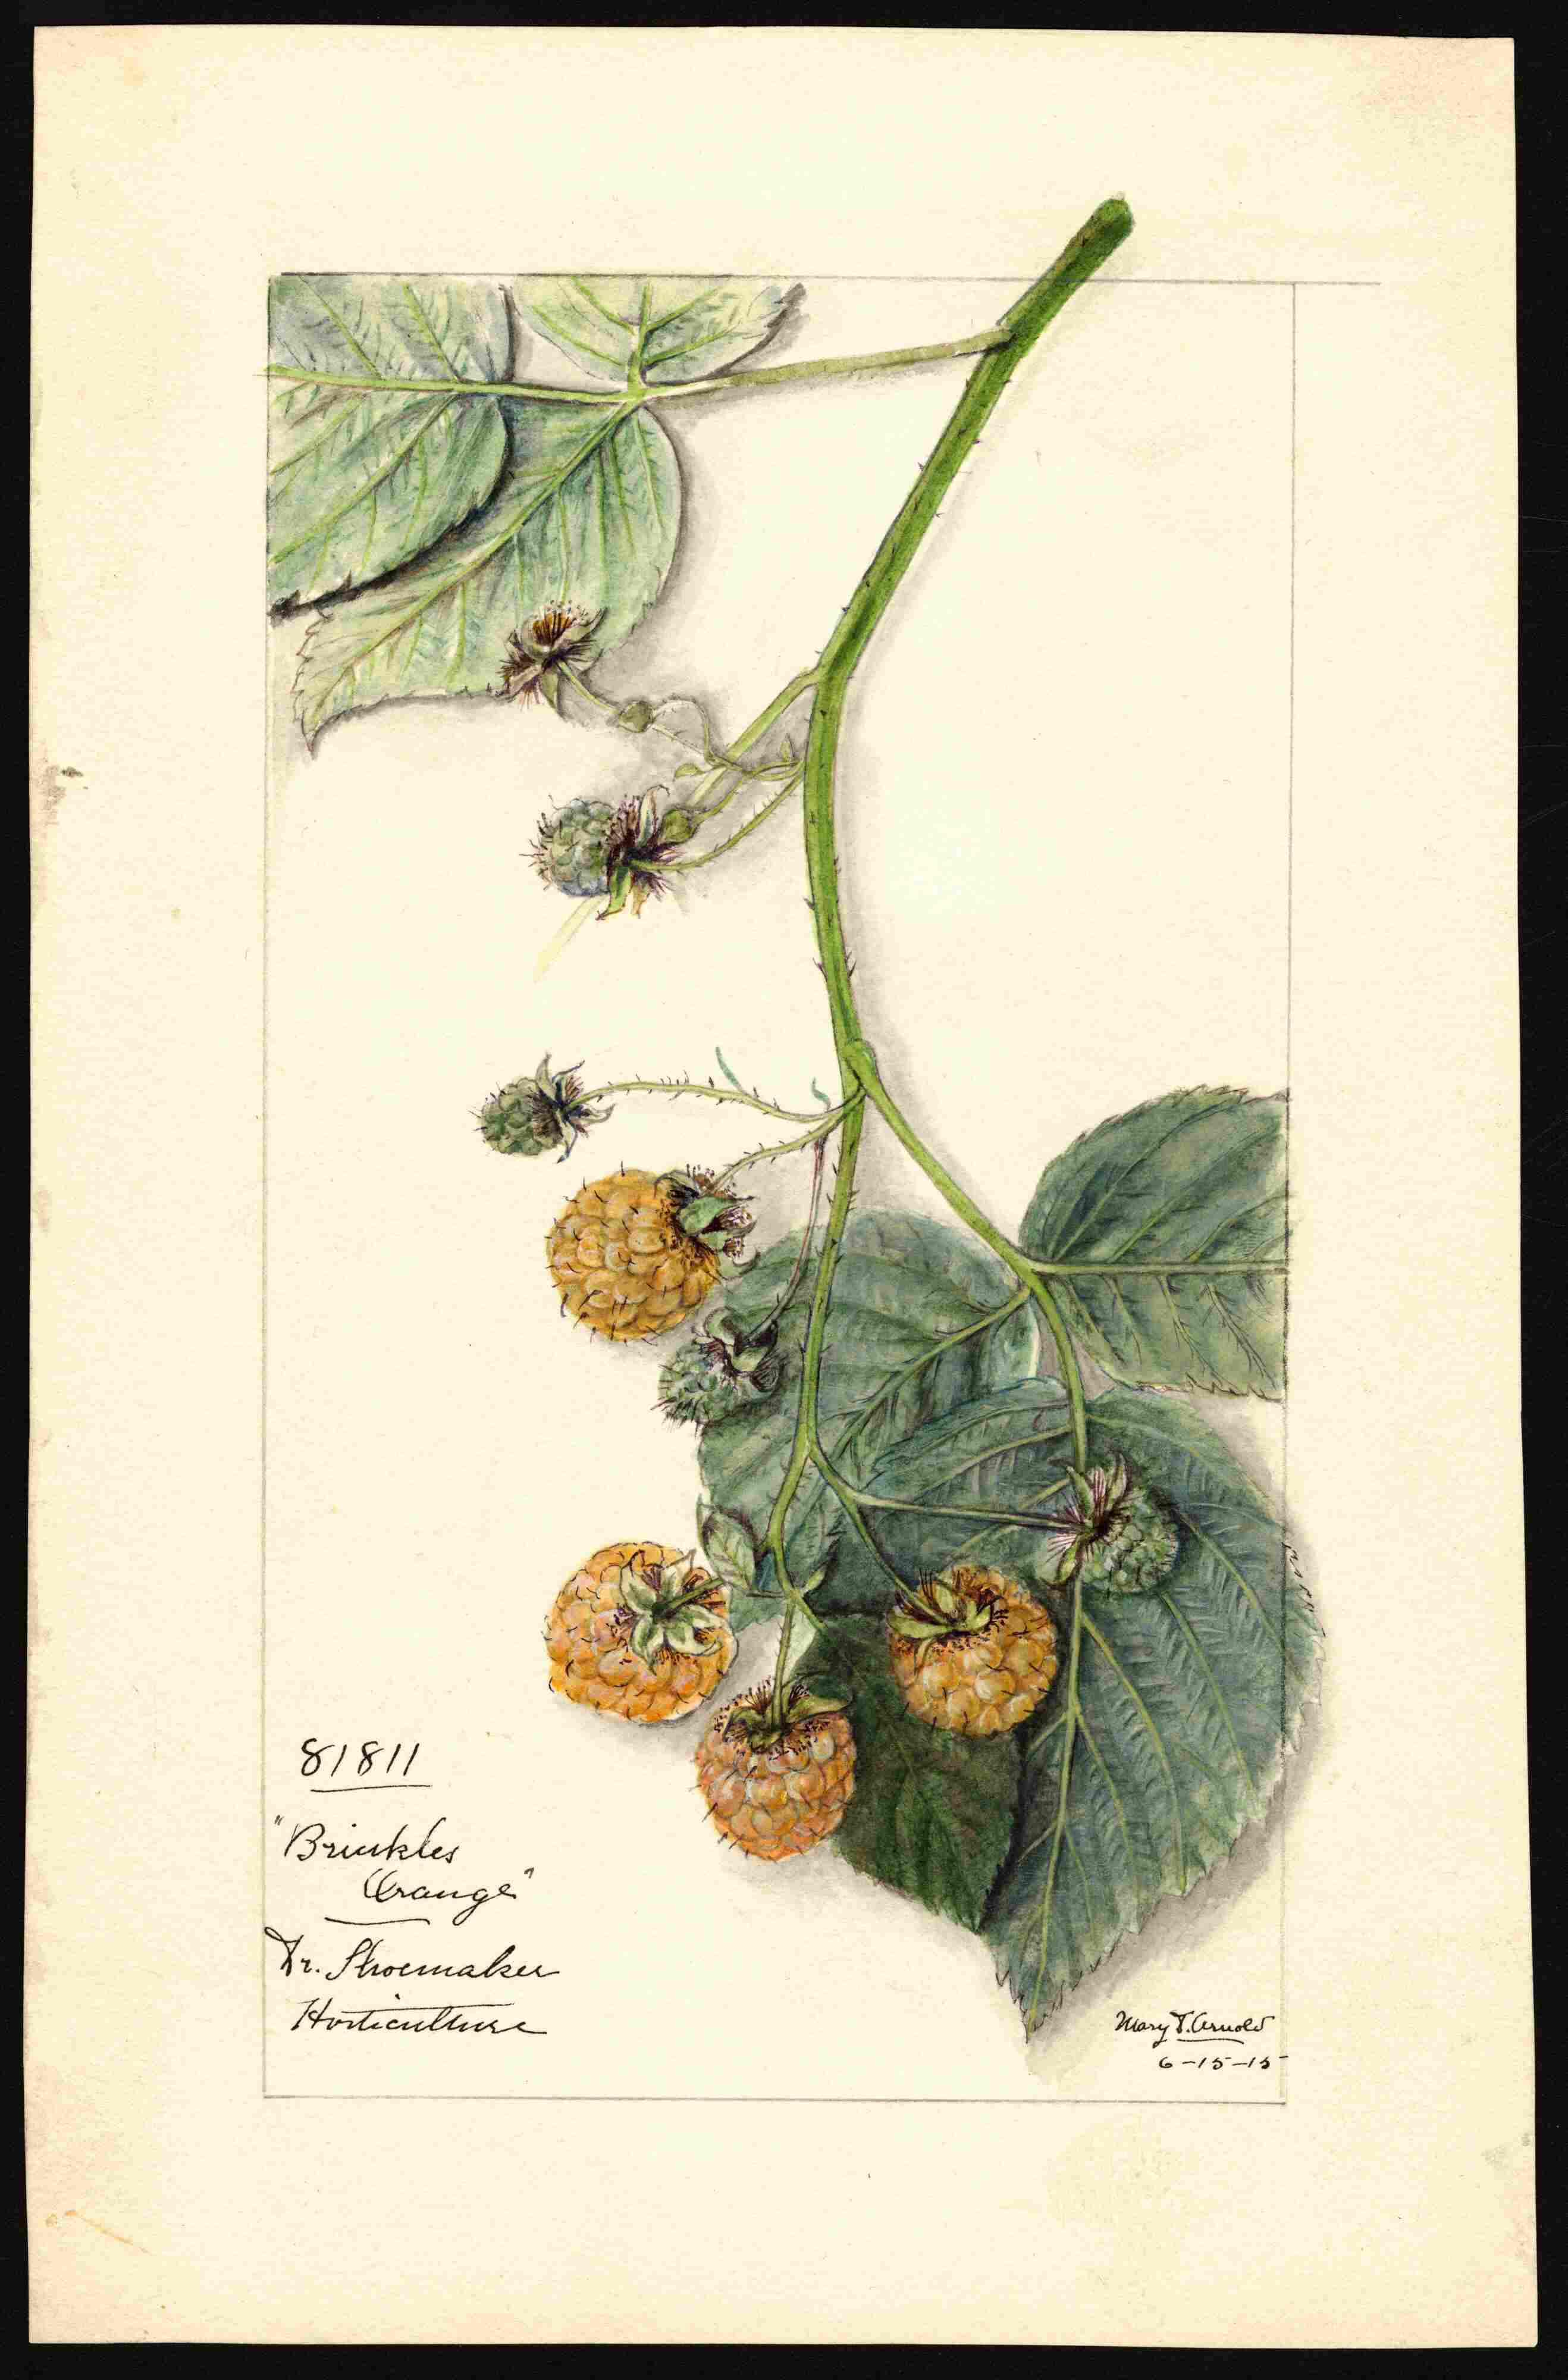 81811
"Brinkles
Orange"
Dr. Shoemaker
Horticulture
Mary D. Arnold
6-15-15